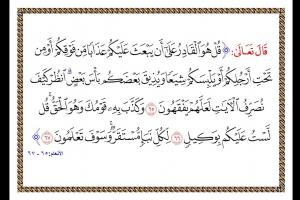 قال تعالى: ﴿ قُلْ هُوَ ٱلْقَادِرُ عَلَىٰٓ أَن يَبْعَثَ عَلَيْكُمْ عَذَابًا مِّن فَوْقِكُمْ أَوْ مِن
تَحْتِ أَرْجُلِكُمْ أَوْ يَلْبِسَكُمْ شِيَعًا وَيُذِيقَ بَعْضَكُم بَأْسَ بَعْضٍ ۗ ٱنظُرْ كَيْفَ
نُصَرِّفُ ٱلْـَٔايَـٰتِ لَعَلَّهُمْ يَفْقَهُونَ ٦٥ وَكَذَّبَ بِهِۦ قَوْمُكَ وَهُوَ ٱلْحَقُّ ۚ قُل
لَّسْتُ عَلَيْكُم بِوَكِيلٍ ٦٦ لِّكُلِّ نَبَإٍ مُّسْتَقَرٌّ ۚ وَسَوْفَ تَعْلَمُونَ ٦٧ ﴾
الأنعام: ٦٥ - ٦٧